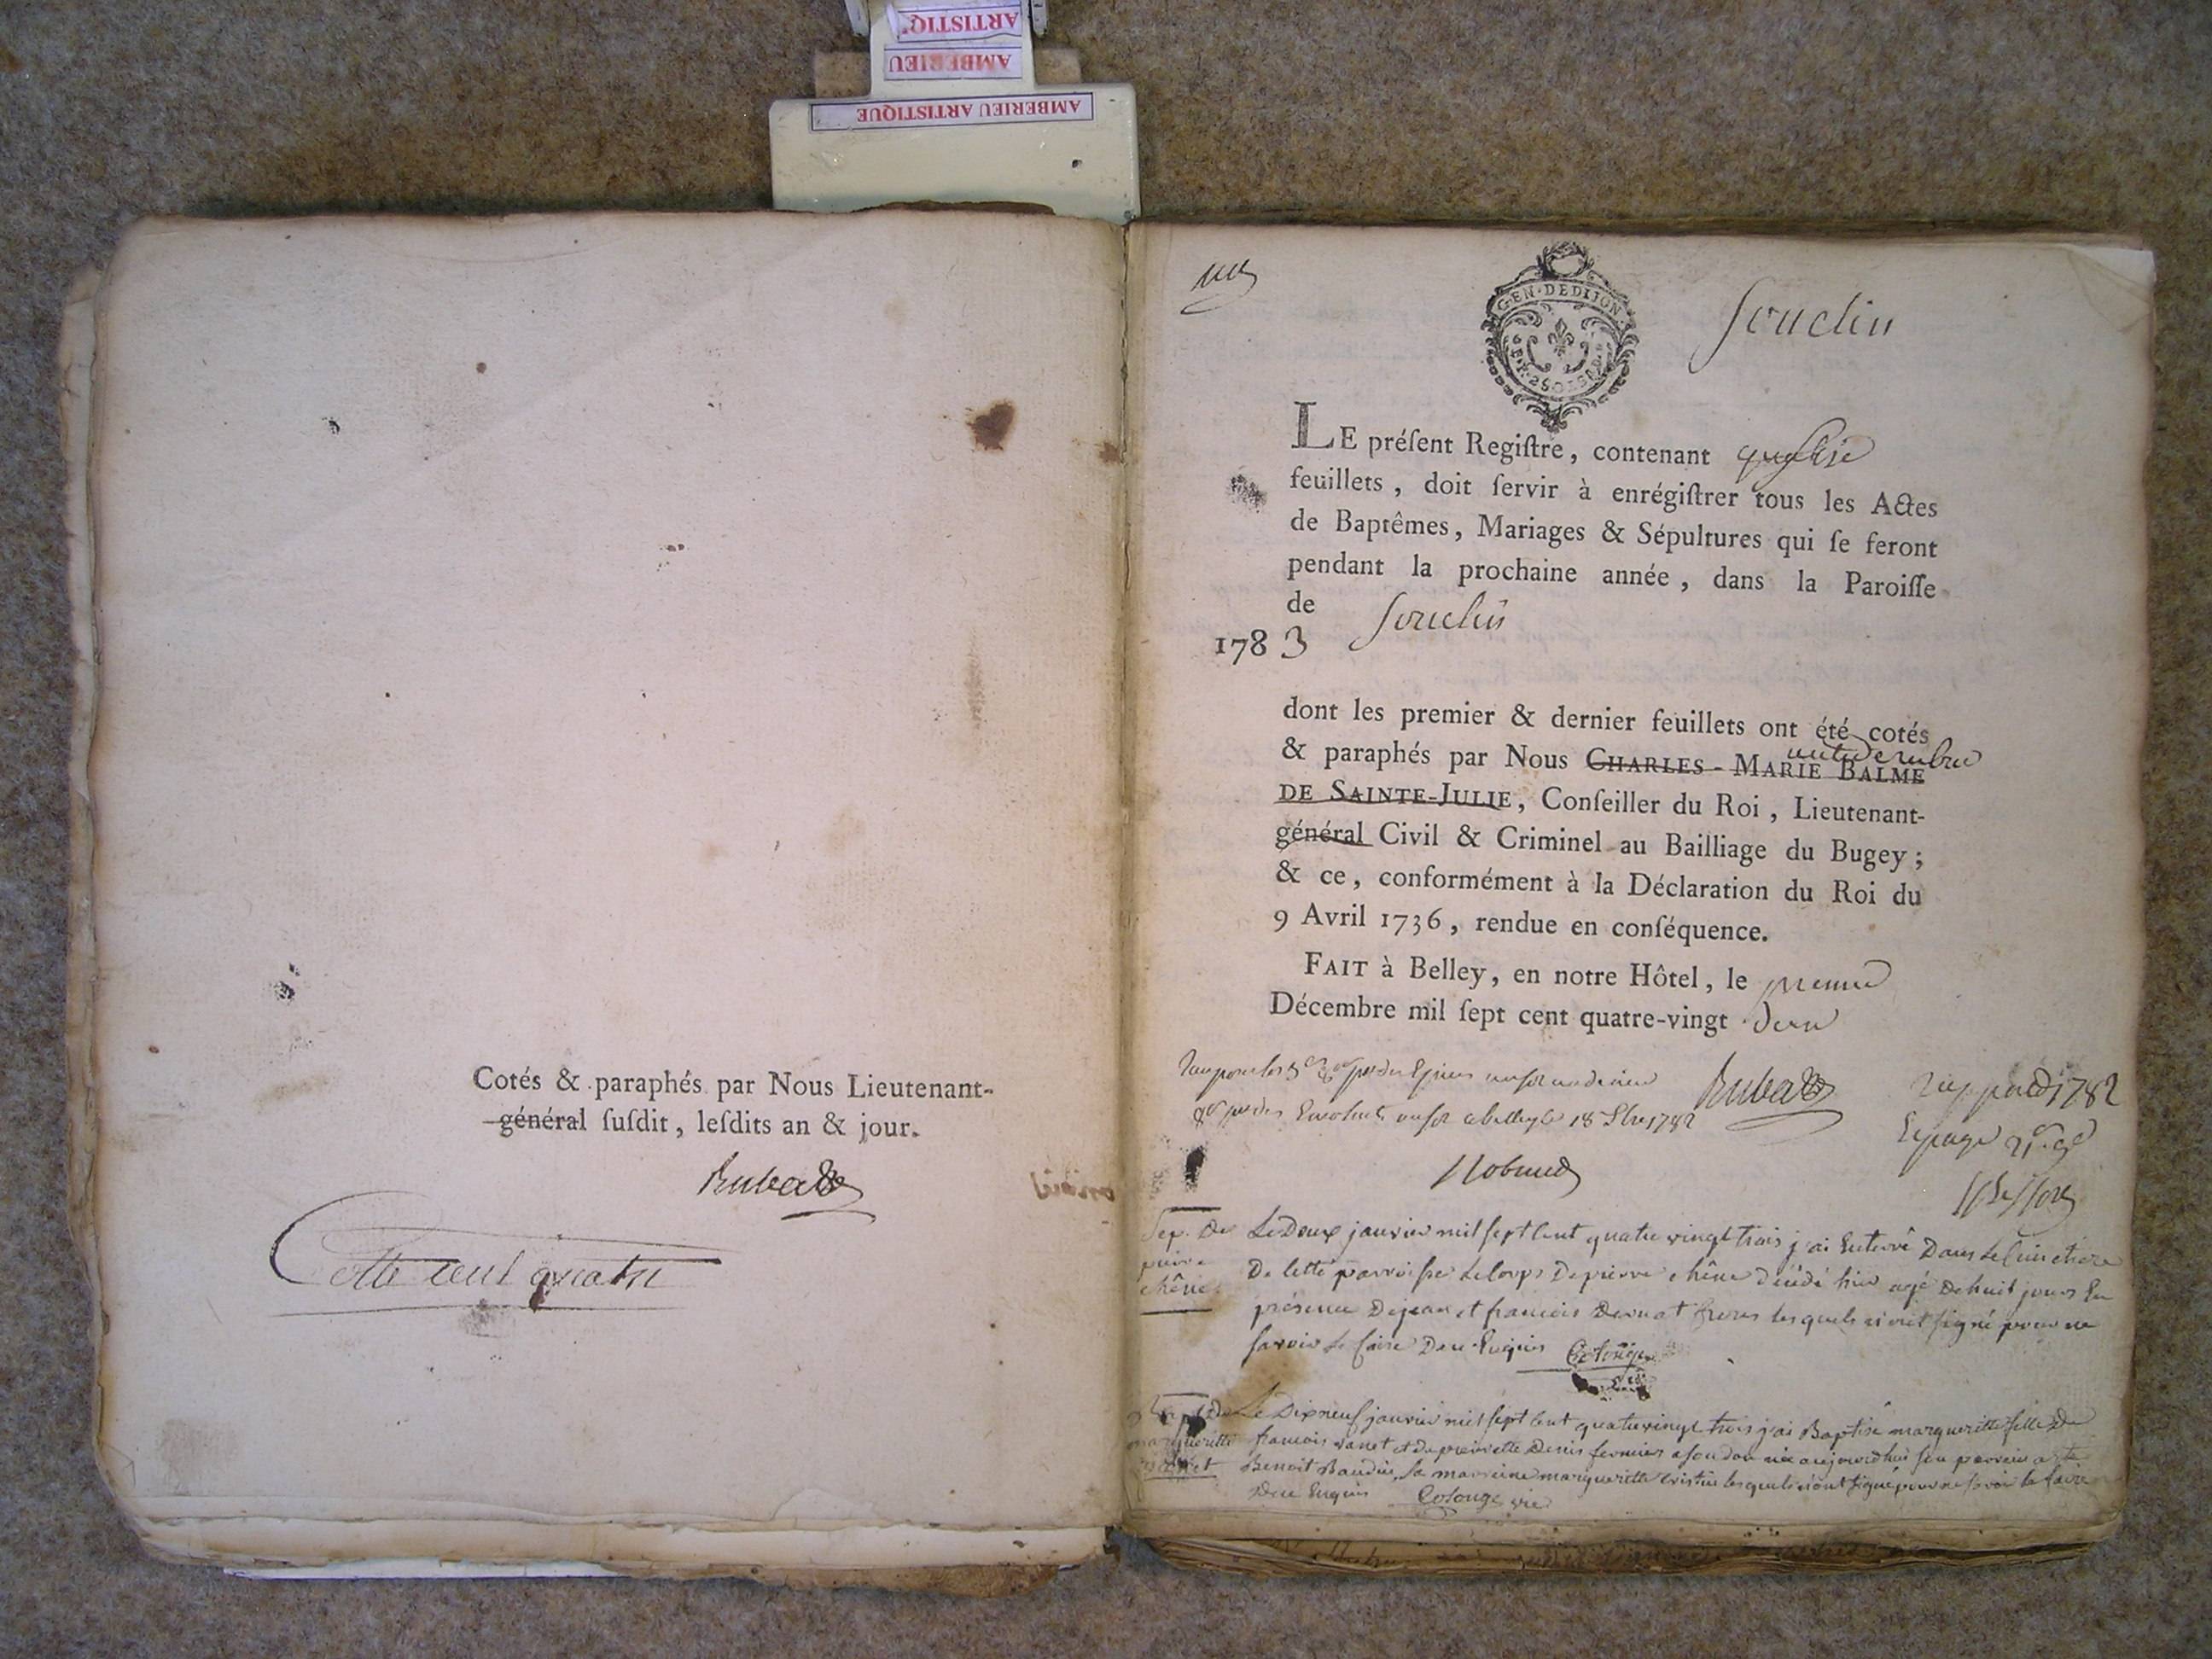 ARTISTIQ
AMBERIEU
AMBERIEU ARTISTIQUE
Cotés & paraphés par Nous Lieutenant-
général ſuſdit, leſdits an & jour.
Cotte cent quatre
GEN·DEDIJON
Souclin
LE préſent Regiſtre, contenant
feuillets, doit ſervir à enrégiſtrer tous les Actes
de Baptêmes, Mariages & Sépultures qui ſe feront
pendant la prochaine année, dans la Paroiſſe
de Souclin
1783
dont les premier & dernier feuillets ont été cotés
& paraphés par Nous CHARLES-MARIE BALME
DE SAINTE-JULIE, Conſeiller du Roi, Lieutenant-
général Civil & Criminel au Bailliage du Bugey;
& ce, conformément à la Déclaration du Roi du
9 Avril 1736, rendue en conſéquence.
FAIT à Belley, en notre Hôtel, le premier
Décembre mil ſept cent quatre-vingt deux
1782
a belley le 18 1782
Sep. De Le Deux janvier mil sept cent quatre vingt trois j'ai Enterré Dans le Cimetiere
pierre De cette parroisse le corps De pierre chêne décédé hier agé De huit jours En
chêne présence De jean et francois Dernat freres lesquels n'ont signé pour ne
savoir le faire De ce Enquis Colonge
Le Dixneuf janvier mil sept cent quatrevingt trois j'ai Baptisé margueritte fille De
margueritte francois vanet et De pierrette Denis fermiers a soudon née aujourdhui son parrein a été
Benoit Baudin, la marreine margueritte cristin lesquels n'ont signé pour ne savoir le faire
De ce Enquis Colonge vic